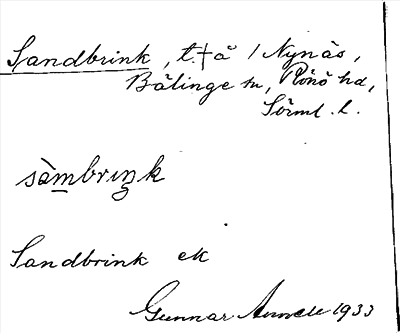 Sandbrink, t.†å / Nynäs,
Bälinge sn, Rönö hd,
Sörml. l.
sàmbriŋk
Sandbrink ek
Gunnar 1933